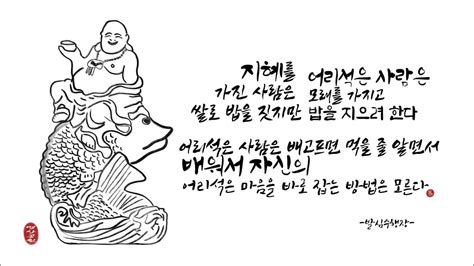 지혜를
가진 사람은
쌀로 밥을 짓지만
어리석은 사람은
모래를 가지고
밥을 지으려 한다
어리석은 사람은 배고프면 먹을 줄 알면서
배워서 자신의
어리석은 마음을 바로 잡는 방법은 모른다
-발심수행장-